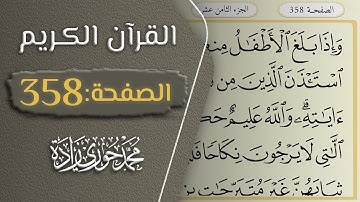 القرآن الكريم
الصفحة:358
محمد حوري زادة
الصفحة 358 الجزء الثامن عشر
وَإِذَا بَلَغَ ٱلْأَطْفَٰلُ مِنكُ
ٱسْتَـْٔذَنَ ٱلَّذِينَ مِن
ءَايَٰتِهِۦۗ وَٱللَّهُ عَلِيمٌ حَكِ
ٱلَّٰتِى لَا يَرْجُونَ نِكَاحًا فَلَ
ثِيَابَهُنَّ غَيْرَ مُتَبَرِّجَٰتٍۭ بِ